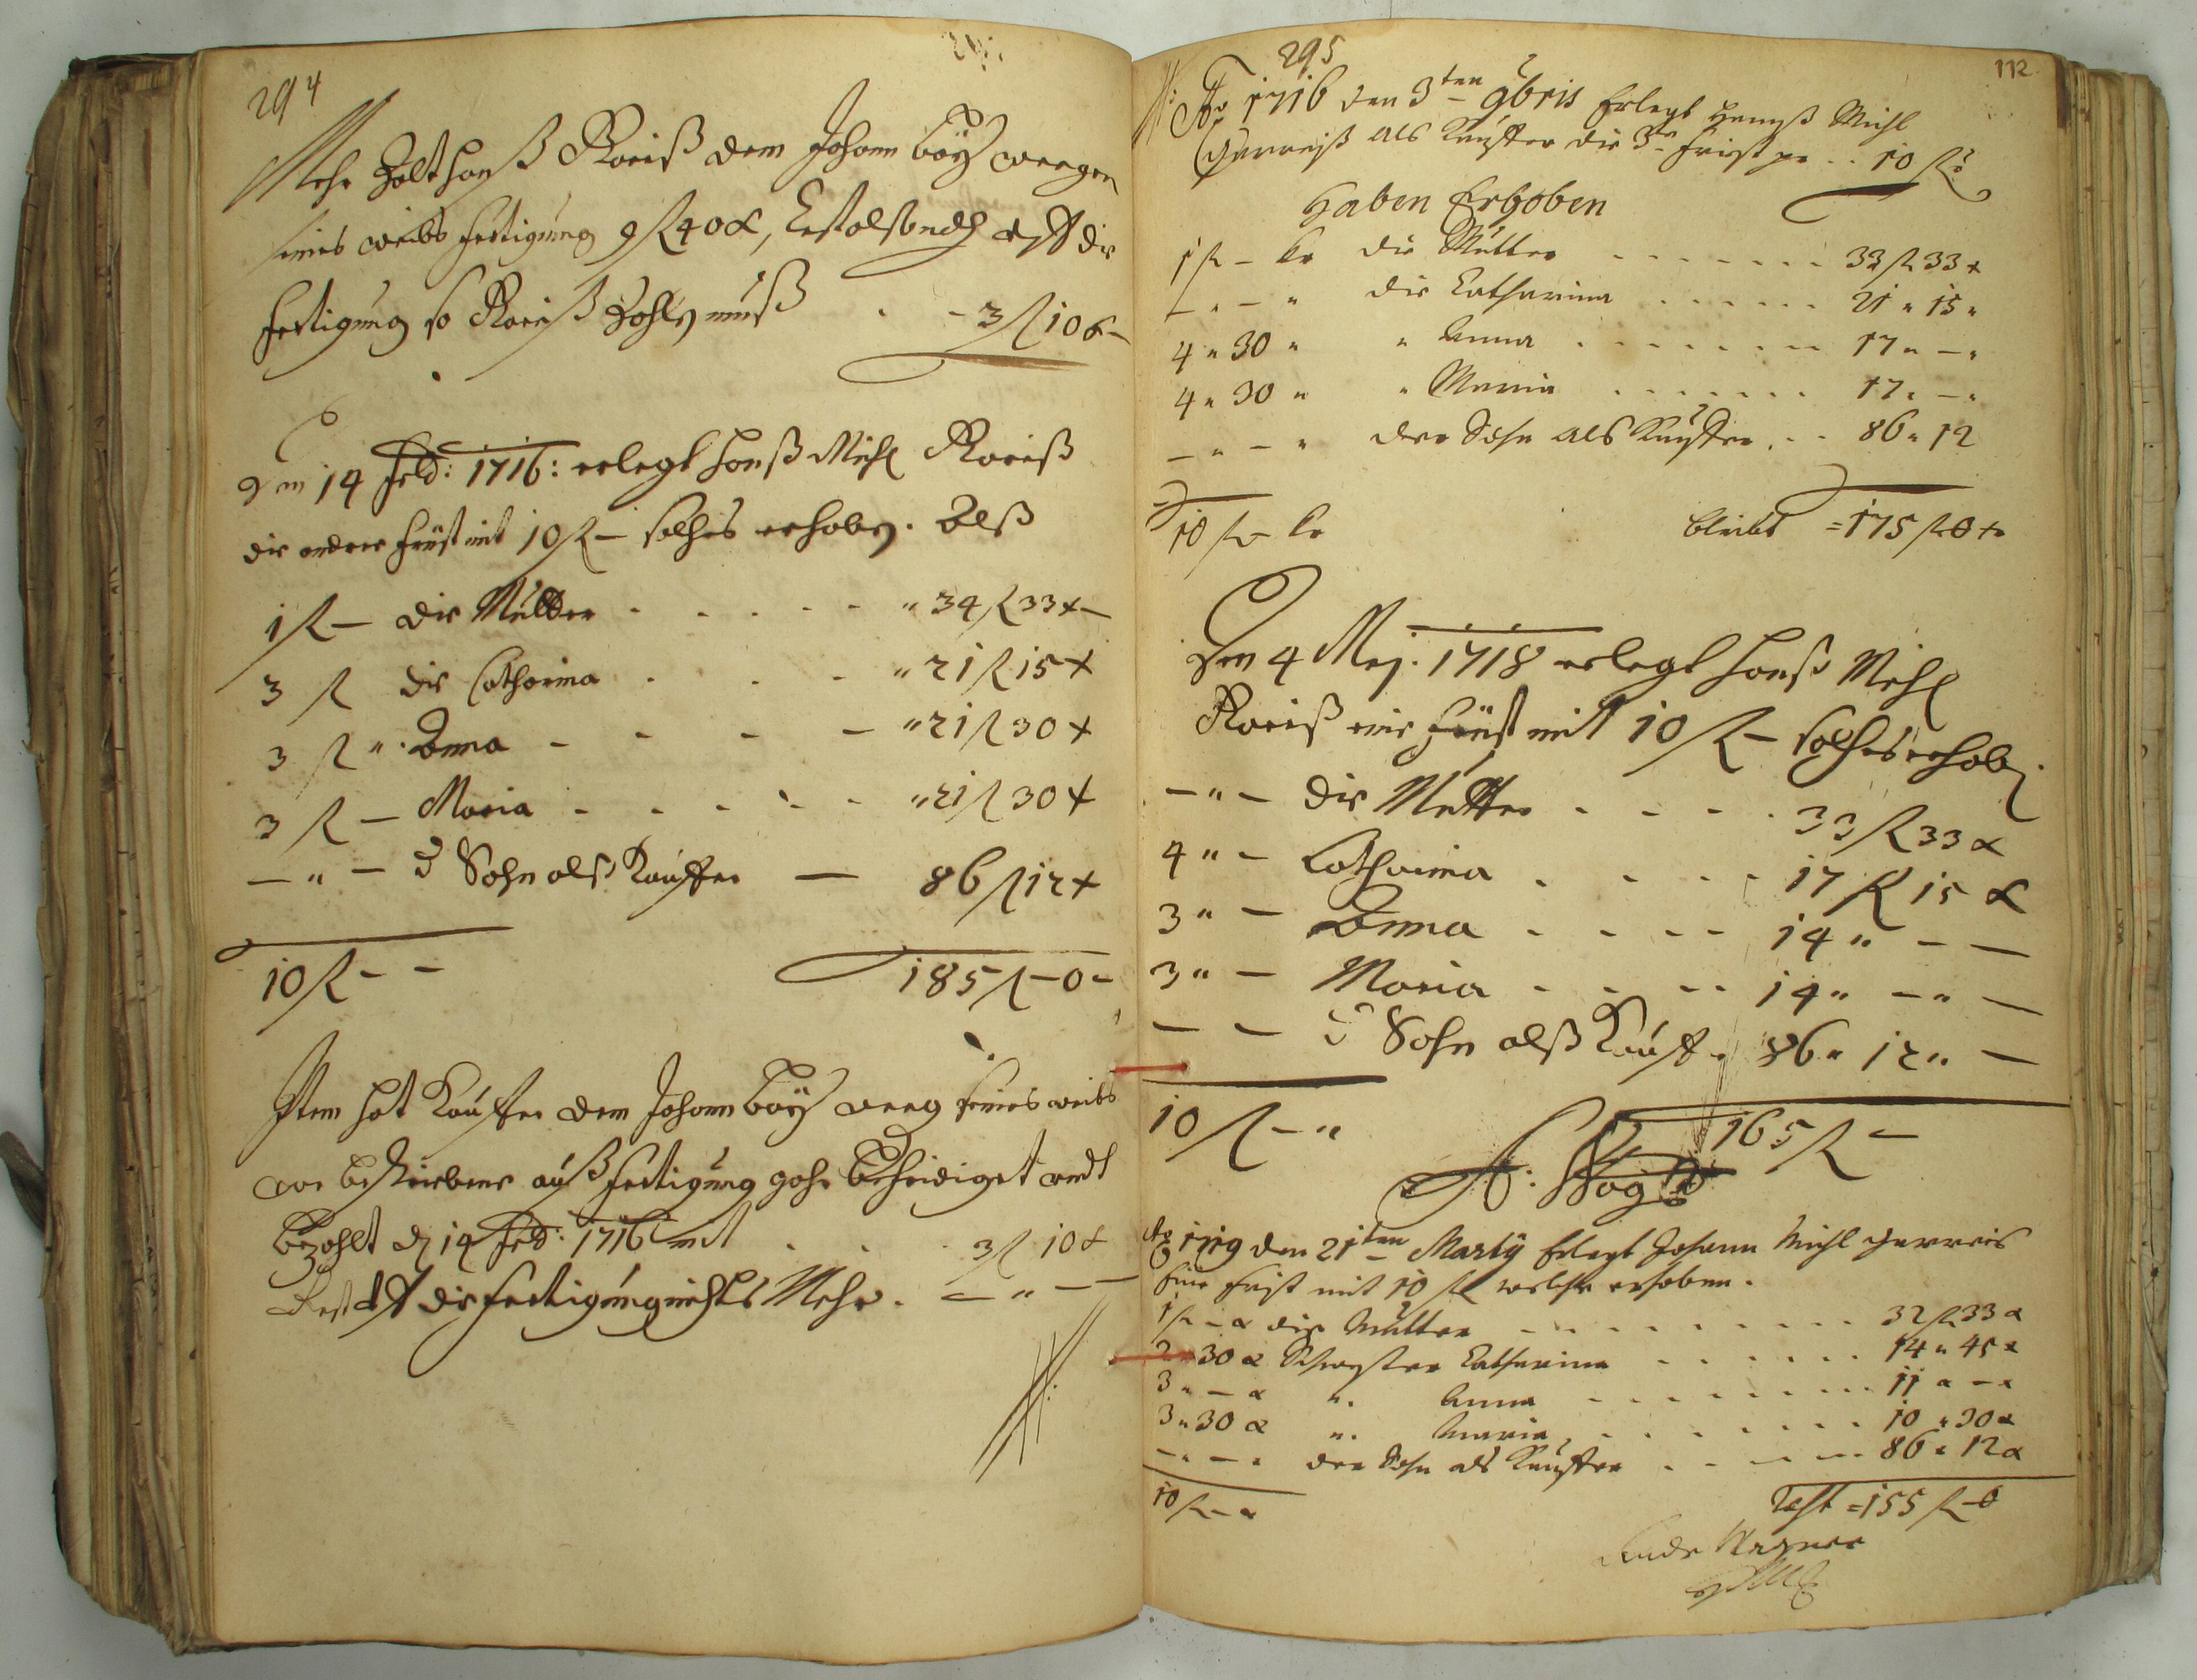 294
Mehr Zalt hanß Kreiß dem Johann wegen
seines weibs fertigung 9 fl 40 x, die
fertigung so Kreiß Zahlen muß . . 3 fl 10 x
den 14 Feb: 1716: erlegt hanß Michl Kreiß
die andere früst mit 10 fl – solches erhoben. Alß
1 fl – die Mütter - - - - „ 34 fl 33 x –
3 fl die Catharina . . . „ 21 fl 15 x
3 fl „ Anna - - - - „ 21 fl 30 x
3 fl – Maria - - - - - „ 21 fl 30 x
– „ – d Sohn alß Kauffer — 86 fl 12 x
10 fl – – 185 fl – 0 –
Item hat Kauffer dem Johann weeg seines weibs
auß fertigung und
bezahlt d 14 Feb: 1716 mit . . . 3 fl 10 x
Rest die fertigung nichts Mehr . — „ — —
295
112
Ao 1716 den 3ten 9bris Erlegt Hannß Michl
als Kauffer die 3te frist pr . . 10 fl
Haben Erhoben
1 fl – kr die Mutter . . . . . . 33 fl 33 x
– „ – „ die Catharina . . . . . . 21 „ 15 „
4 „ 30 „ „ Anna . . . . . . 17 „ – „
4 „ 30 „ „ Maria . . . . . . 17 „ – „
– „ – „ der Sohn als Kauffer . . . 86 „ 12
10 fl – kr bleibt = 175 fl 0 x
Den 4 Mej. 1718 erlegt hanß Michl
Kreiß eine früst mit 10 fl – solches erhoben
– „ – die Mutter - - - . 33 fl 33 x
4 „ – Catharina . - - - 17 fl 15 x
3 „ – Anna . . - - 14 „ – —
3 „ – Maria - - - - 14 „ – „ —
– – d Sohn alß Kauff . 86 „ 12 „ —
10 fl – „ 165 fl –
Ao 1719 den 21ten Martÿ Erlegt Johann Michl
Eine frist mit 10 fl welche erhoben.
1 fl – x die Mutter - - - - - - 32 fl 33 x
2 „ 30 x Schwester Catharina . . . . . . 14 „ 45 x
3 „ – x „. Anna . . . . . . 11 „ – x
3 „ 30 x „. Maria . . . . . . 10 „ 30 x
– „ – „ der Sohn als Kauffer . . . . 86 „ 12 x
10 fl – x Rest = 155 fl – 0